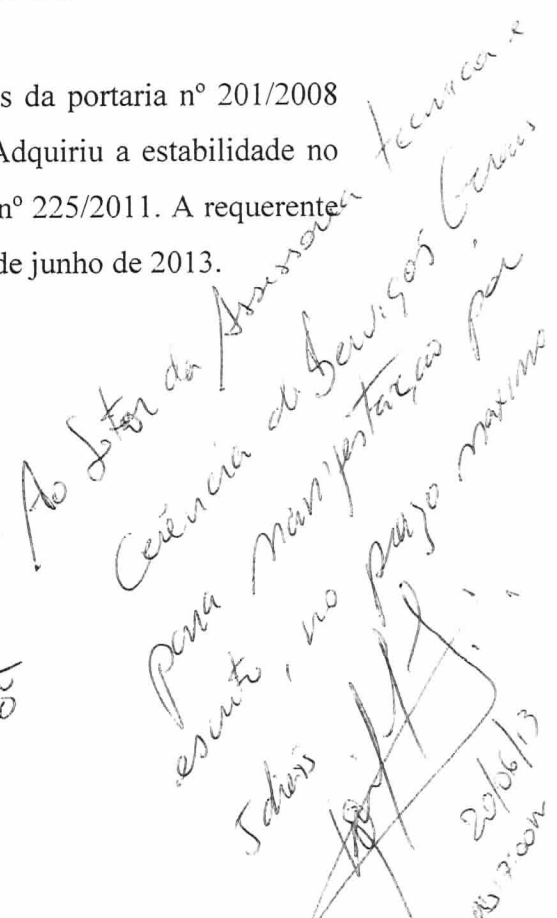 s da portaria nº 201/2008
Adquiriu a estabilidade no
nº 225/2011. A requerente
de junho de 2013.
Ao Setor da Assessoria técnica e
Gerência de Serviços Gerais
para manifestação por
escrito, no prazo máximo
5 dias
20/06/13